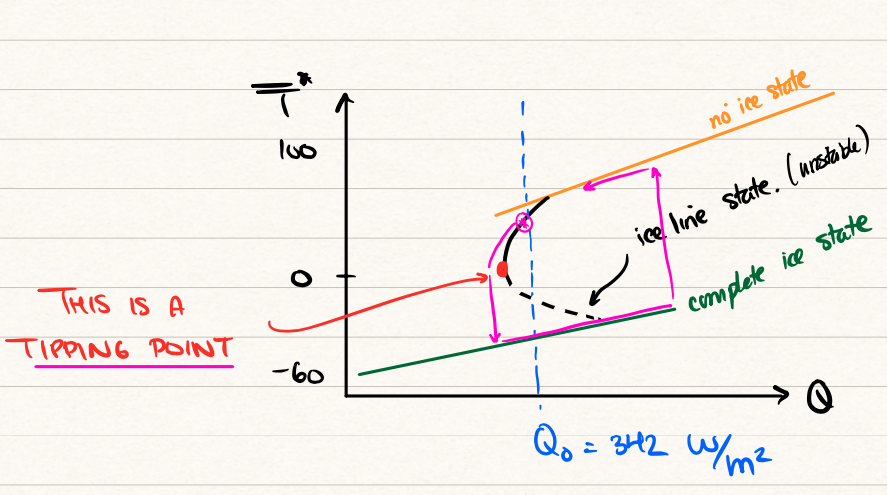 T*
100
no ice state
ice line state. (unstable)
0
complete ice state
THIS IS A
TIPPING POINT
-60
Q
Q₀ = 342 W/m²